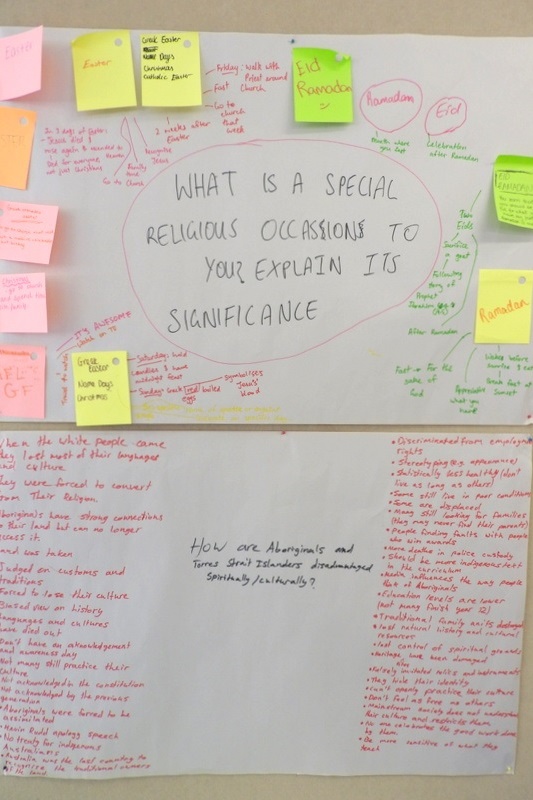 Easter
Easter
Greek Easter
Name Days
Christmas
Catholic Easter
Friday: walk with
Priest around
Church
Fast
Go to
church
that
week
2 weeks after
Easter
Recognise
Jesus
Family
time
Go to Church
In 3 days of Easter
- Jesus died &
rose again &
Died for everyone
not just Christians
Eid
Ramadan
Ramadan
month where
you fast
Eid
Celebration
after Ramadan
Two
Eids
Sacrifice
a goat
Following
story of
Prophet
After Ramadan
Ramadan
Fast for the
sake of
God
Appreciate
what you
have
before
sunrise &
Break fast at
Sunset
WHAT IS A SPECIAL
RELIGIOUS OCCASSIONS TO
YOU? EXPLAIN ITS
SIGNIFICANCE
IT'S AWESOME
AFL
GF
Greek
Easter
Name Days
Christmas
Saturday: hold
candles & have
midnight feast
Sunday: crack red boiled
eggs
symbolises
Jesus'
blood
When the white people came
they lost most of their languages
and culture
They were forced to convert
from their Religion.
Aboriginals have strong connections
to their land but can no longer
access it
and was taken
Judged on customs and
traditions
Forced to lose their culture
Biased view on history
languages and cultures
have died out
Don't have an acknowledgement
and awareness day
Not many still practice their
culture
Not acknowledged in the constitution
Not acknowledged by the previous
generation
• Aboriginals were forced to be
assimilated
• Kevin Rudd apology speech
• No treaty for indigenous
Australians
• Australia was the last country to
recognise the traditional owners
of the land
How are Aboriginals and
Torres Strait Islanders disadvantaged
Spiritually/culturally?
• Discriminated from employment
rights
• Stereotyping (e.g. appearance)
• Statistically less healthy (don't
live as long as others)
• Some still live in poor conditions
• Some are displaced
• Many still looking for families
(they may never find their parents)
• People finding faults with people
who win awards
• More deaths in police custody
• Should be more indigenous text
in the curriculum
• Media influences the way people
think of Aboriginals
• Education levels are lower
(not many finish year 12)
• Traditional family units destroyed
• Lost natural history and cultural
resources
• Lost control of spiritual grounds
• Heritage have been damaged
also
• Falsely imitated relics and instruments
• They hide their identity
• Can't openly practice their culture
• Don't feel as free as others
• Mainstream society does not understand
their culture and restricts them
• No one celebrates the good work done
by them.
• Be more sensitive of what they
teach